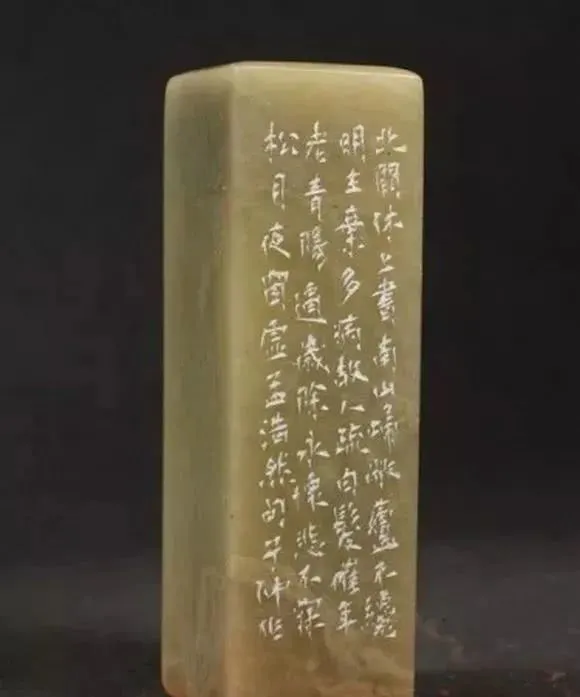 北闕休上書南山歸敝廬不纔
明主棄多病故人疏白髮催年
老青陽逼歲除永懷悲不寐
松月夜窗虛孟浩然句子作